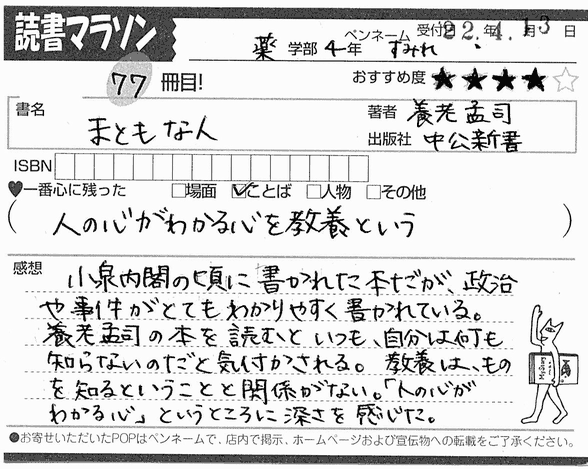 読書マラソン
受付日 22年4月13日
薬 学部 4年 ペンネーム すみれ
77 冊目!
おすすめ度 ★★★★☆
書名 まともな人
著者 養老孟司
出版社 中公新書
ISBN
♥一番心に残った □場面 ☑ことば □人物 □その他
(人の心がわかる心を教養という)
感想
小泉内閣の頃に書かれた本だが、政治
や事件がとてもわかりやすく書かれている。
養老孟司の本を読むといつも、自分は何も
知らないのだと気付かされる。教養は、もの
を知るということと関係がない。「人の心が
わかる心」というところに深さを感じた。
●お寄せいただいたPOPはペンネームで、店内で掲示、ホームページおよび宣伝物への転載をご了承ください。